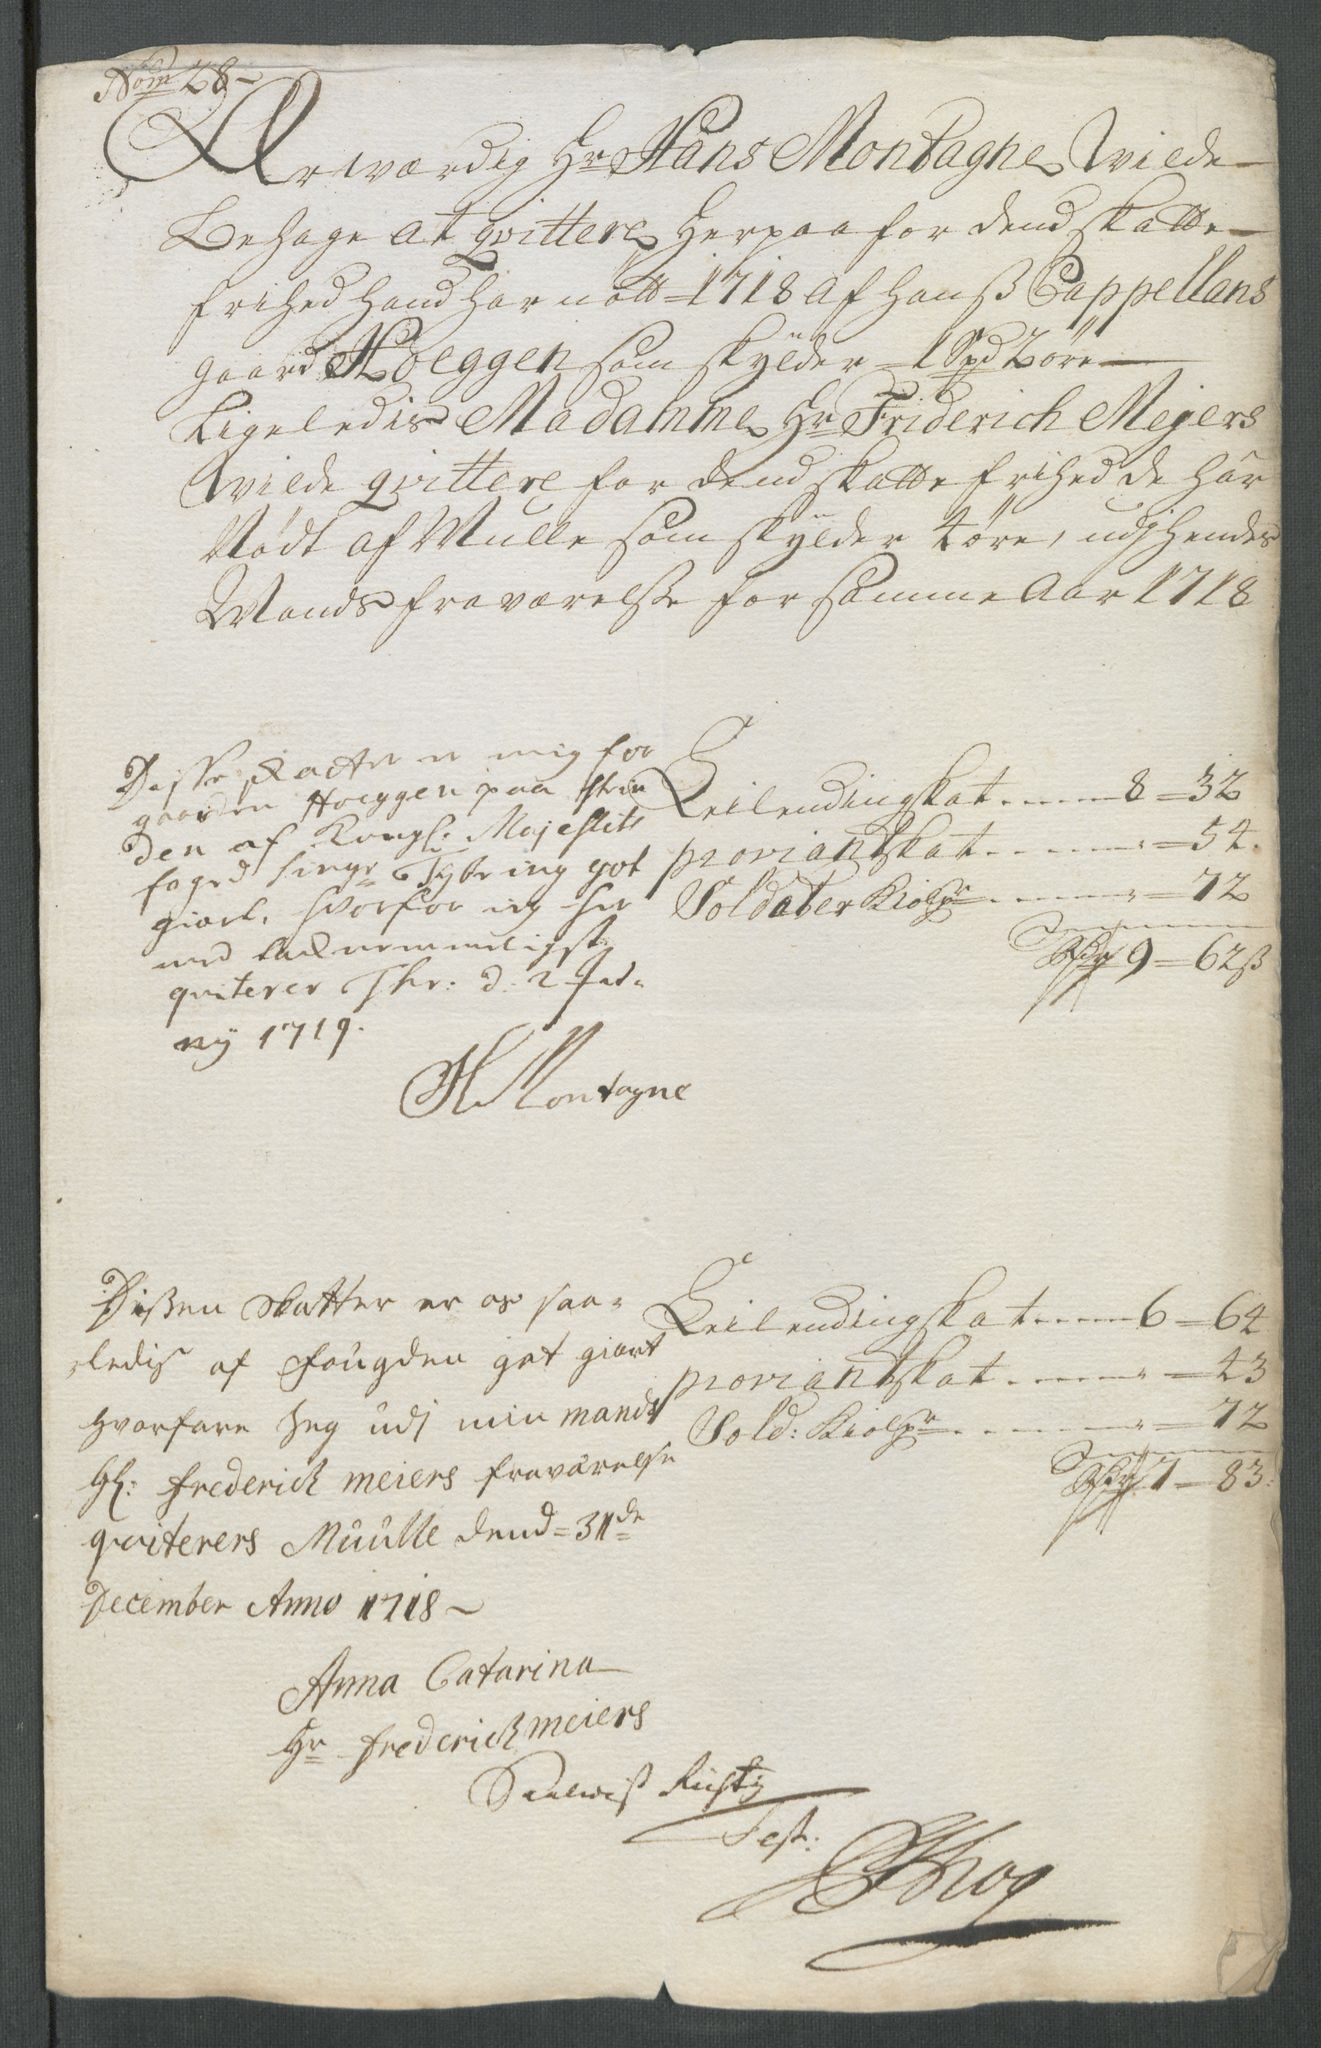 Nom 28
Ærværdig Hr Hans Montagne Wilde
Behage at qvittere herpaa for dend skatte
frihed hand har nött 1718 af hans Cappellans
gaard Hoeggen som skylder 1 Spd 2 öre
Ligeledis Madamme Hr Friderich Mejers
Wilde qvittere for dend skatte frihed de har
Nödt af Mulle som skylder 4 öre, udj hendes
Mands fraværelse for samme Aar 1718
Disse skatter er mig for
gaarden Hoeggen paa
den af Kongl: Majestts
foged Singr Tybring got
giort, hvorfor jeg her
med
qviterer Thr: d: 2
nÿ 1719.
H Montagne
Leilendingskat 8 = 32
proviantskat = 54.
Soldater = 72
Rdr 9 = 62 ß
Dißen skatter er os saa-
ledis af Fougden got giort
hvorfore Jeg udj min mands
Hr: frederich meiers fraværelse
qviterers Muulle dend = 31de
December Anno 1718
Anna Catarina
Hr frederich meiers
Leilendingskat 6 = 64
proviantskat = 43
Sold: = 72
Rdr 7 = 83.
Rigtig
Test: